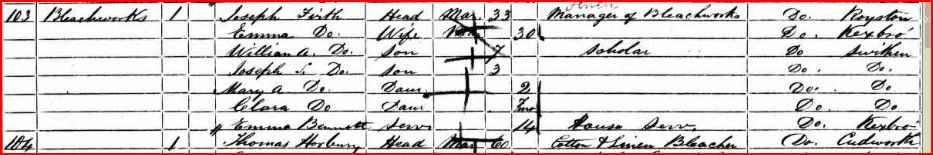 linen
103 Bleachworks 1 " Joseph Firth Head Mar. 33 Manager of Bleachworks Do. Royston
Emma Do. Wife Mar 30 Do. Kexbro'
William A. Do. Son 7 Scholar Do Swithen
Joseph S. Do. Son 3 Do. Do.
Mary A Do. Daur 2 Do. Do.
Clara Do Daur 7mo Do. Do
" Emma Bennett Serv 14 House Serv Do. Kexbro
104 1 Thomas Horbury Head Mar 60 Cotton & Linen Bleacher Do. Cudworth